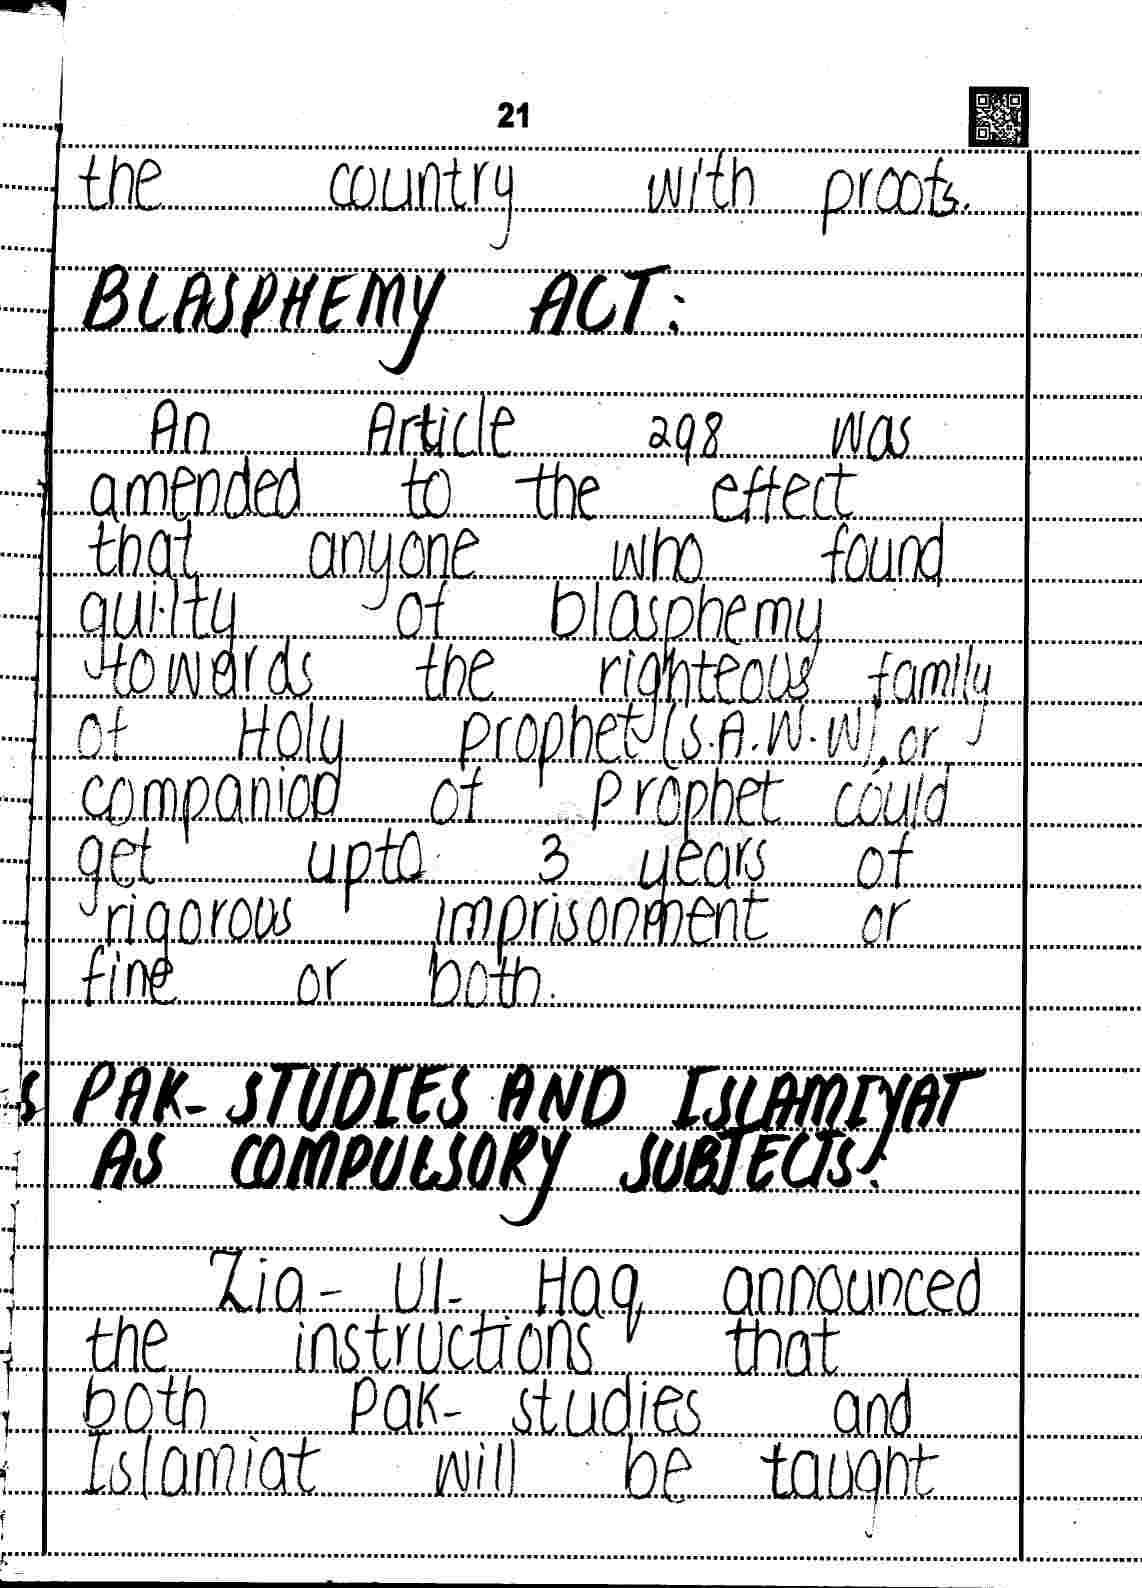 21
the country with proofs.
BLASPHEMY ACT:
An Article 298 was
amended to the effect
that anyone who found
guilty of blasphemy
towards the righteous family
of Holy prophet (S.A.W.W), or
companion of Prophet could
get upto 3 years of
rigorous imprisonment or
fine or both.
S PAK-STUDIES AND ISLAMIYAT
AS COMPULSORY SUBJECTS:
Zia-Ul-Haq announced
the instructions that
both Pak-studies and
Islamiat will be taught